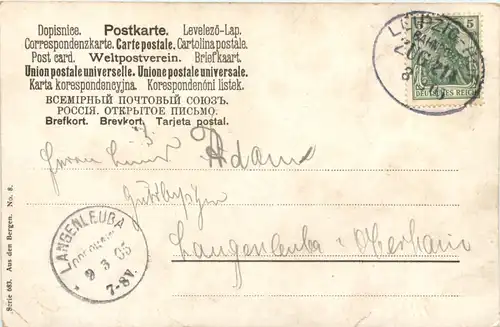 Dopisnice. Postkarte. Levelező-Lap.
Correspondenzkarte. Carte postale. Cartolina postale.
Post card. Weltpostverein. Briefkaart.
Union postale universelle. Unione postale universale.
Karta korespondencyjna. Korespondenční listek.
ВСЕМІРНЫЙ ПОЧТОВЫЙ СОЮЗЪ.
РОССІЯ. ОТКРЫТОЕ ПИСЬМО.
Brefkort. Brevkort. Tarjeta postal.
LEIPZIG
BAHNPOST
ZUG
5
DEUTSCHES REICH
Herrn
Adam
Gutsbesitzer
Langenleuba-Oberhain
LANGENLEUBA
9 3 05
7-8V.
Serie 683. Aus den Bergen. No. 8.